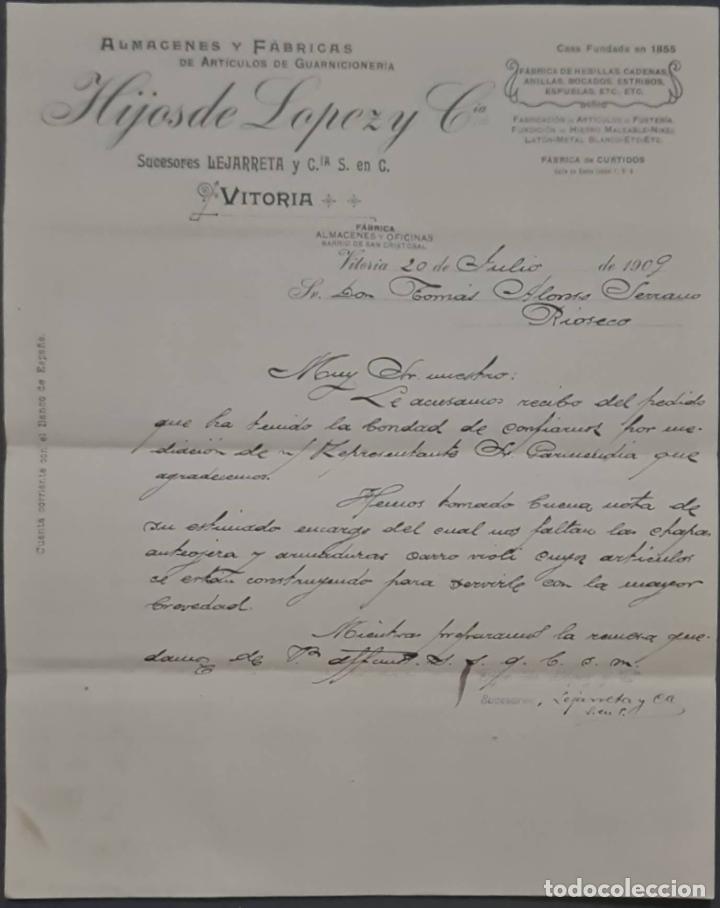 ALMACENES Y FÁBRICAS
DE ARTÍCULOS DE GUARNICIONERÍA
Hijos de Lopez y Cia
Sucesores LEJARRETA y C.IA S. en C.
VITORIA
FÁBRICA
ALMACENES Y OFICINAS
BARRIO DE SAN CRISTOBAL
Casa Fundada en 1855
FÁBRICA DE HEBILLAS, CADENAS,
ANILLAS, BOCADOS, ESTRIBOS,
ESPUELAS, ETC. ETC.
FABRICACIÓN DE ARTÍCULOS DE FUSTERÍA
FUNDICIÓN DE HIERRO MALEABLE-NIKEL
LATÓN-METAL BLANCO-ETC-ETC.
FÁBRICA DE CURTIDOS
Vitoria 20 de Julio de 1909
Sr. Don Tomás Alonso Serrano
Rioseco
Muy Sr. nuestro:
Le acusamos recibo del pedido
que ha tenido la bondad de confiarnos por me-
diación de n/ Representante Sr. Garmendia que
agradecemos.
Hemos tomado buena nota de
su estimado encargo del cual nos faltan las chapas
anteojera y armaduras carro violi cuyos artículos
se estan construyendo para servirle con la mayor
brevedad.
Mientras preparamos la remesa que-
damos de V. affmos. S. S. q. b. s. m.
Sucesores, Lejarreta y Cia
S. en C.
Cuenta corriente con el Banco de España.
todocoleccion